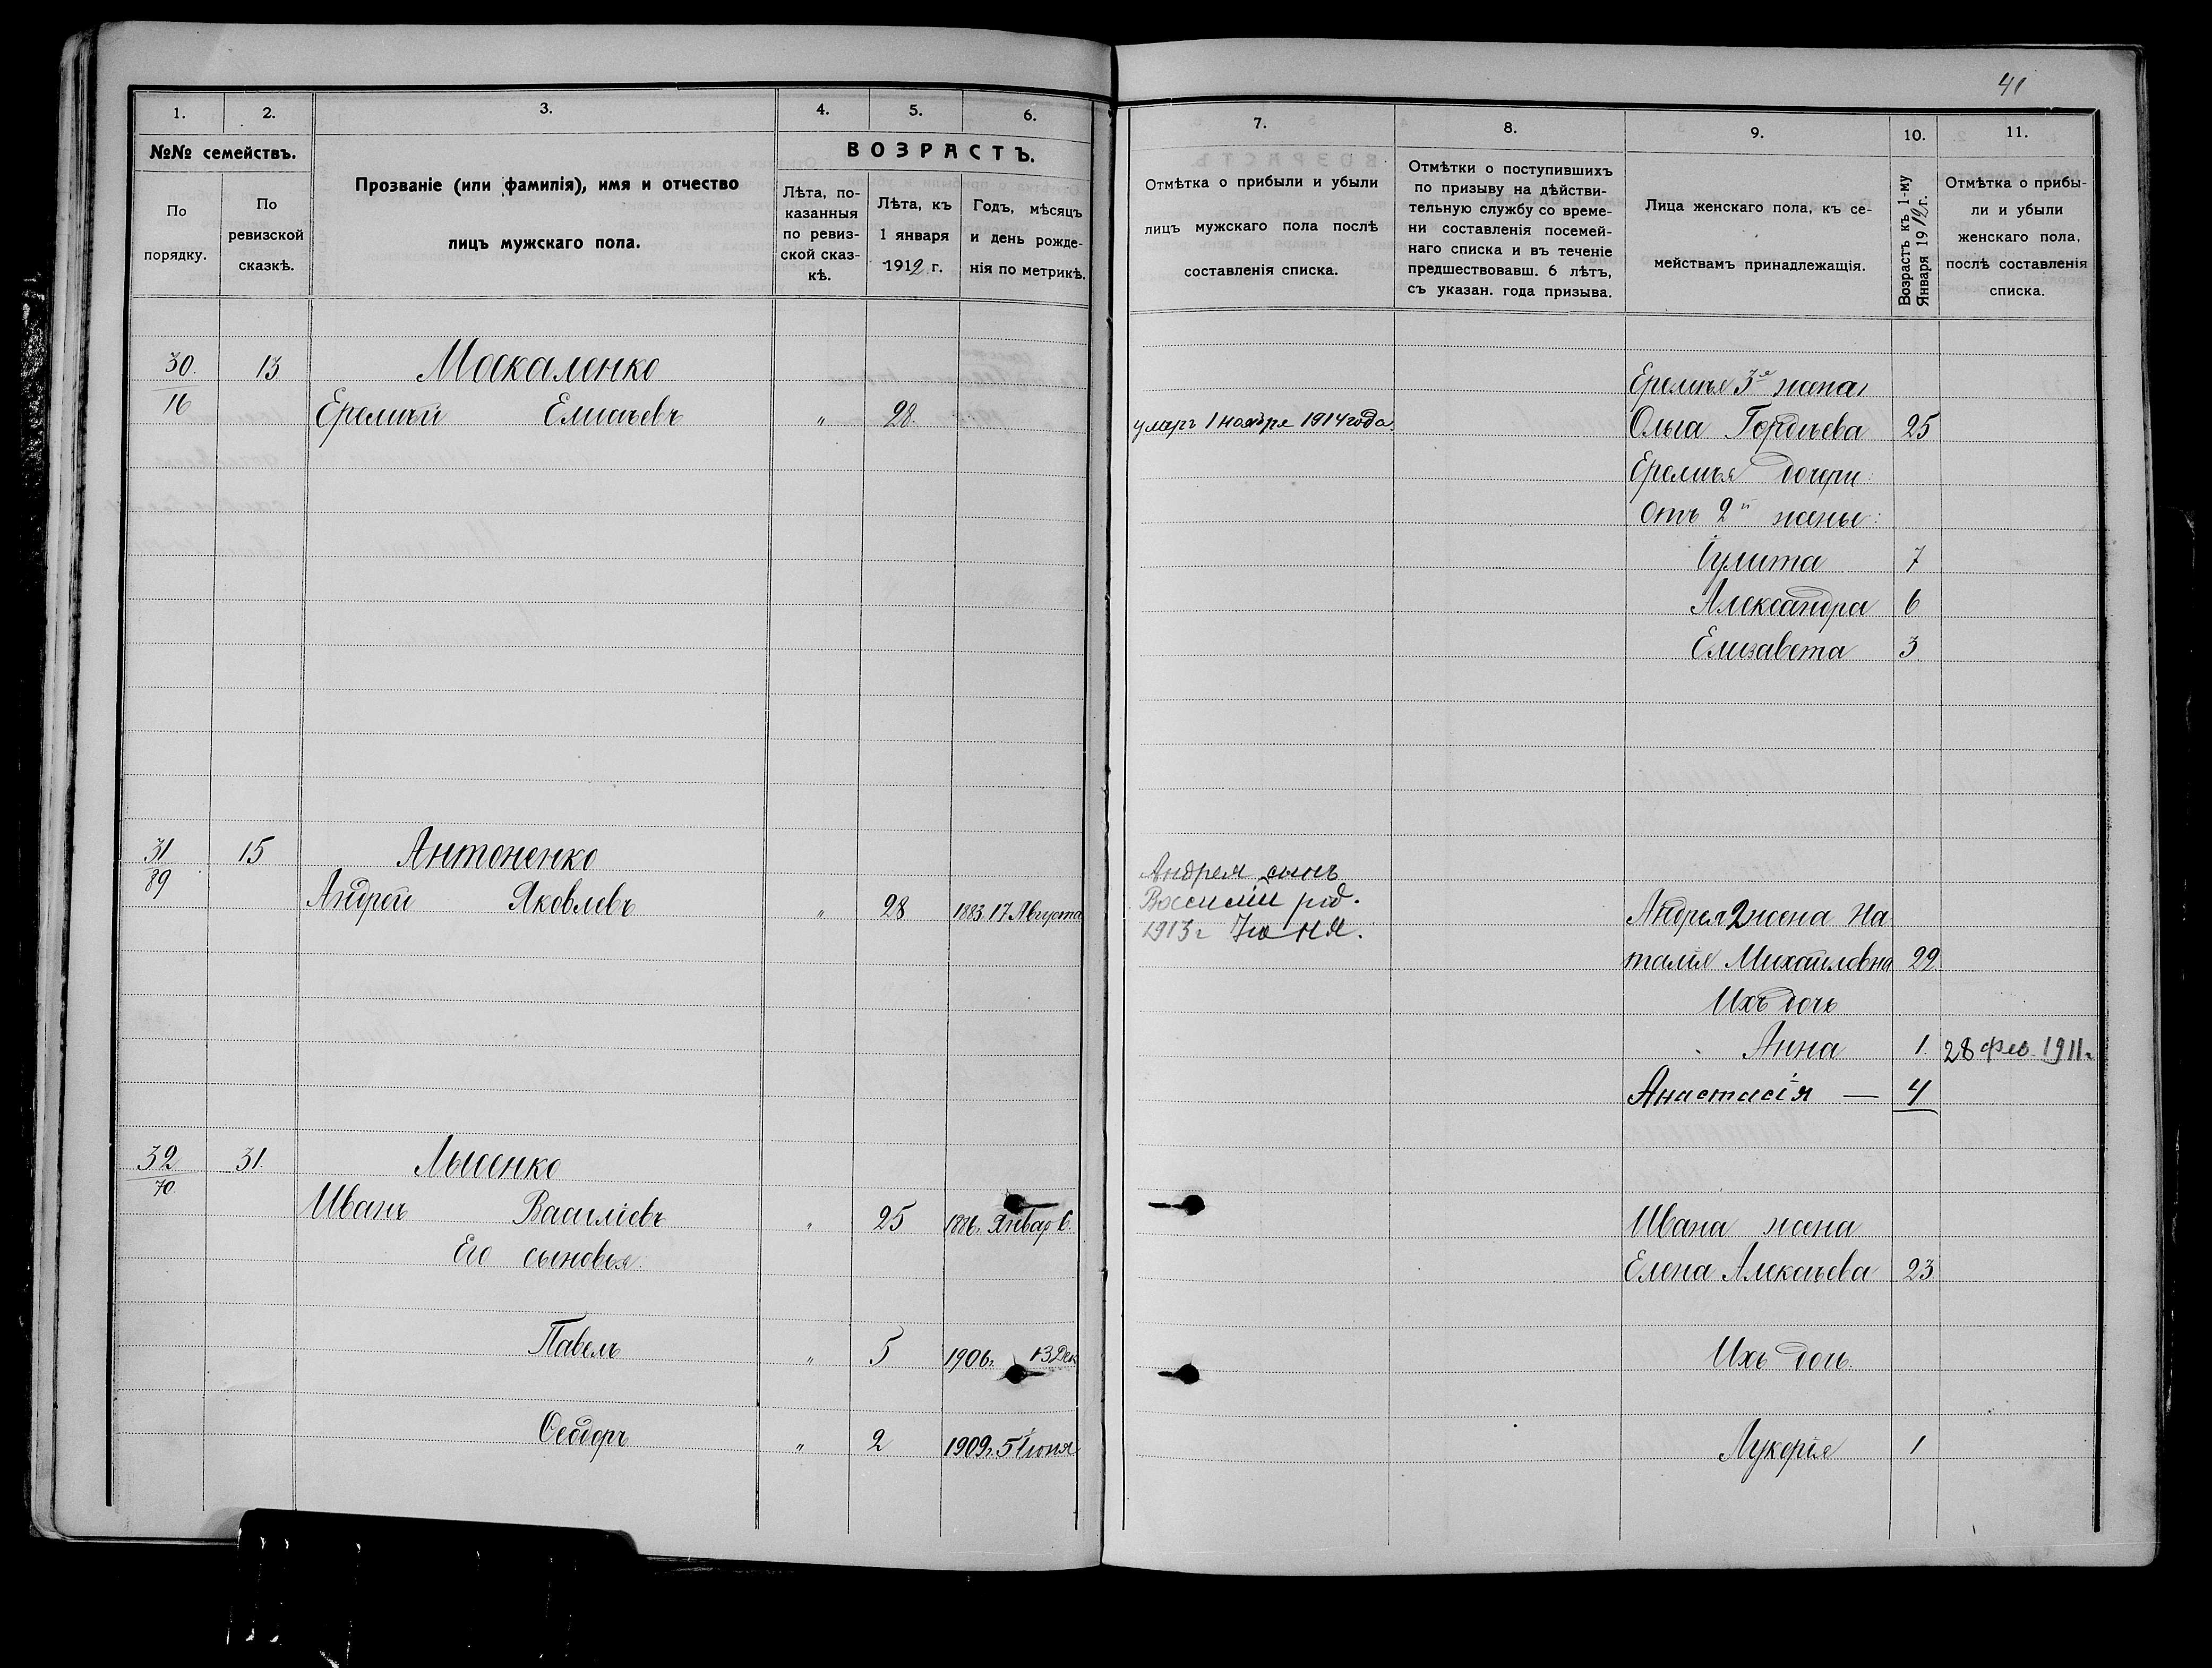 41
1. 2. 3. 4. 5. 6.
№№ семействъ.
По порядку.
По ревизской сказкѣ.
Прозваніе (или фамилія), имя и отчество
лицъ мужскаго пола.
ВОЗРАСТЪ.
Лѣта, по-
казанныя
по ревиз-
ской сказ-
кѣ.
Лѣта, къ
1 января
1912 г.
Годъ, мѣсяцъ
и день рожде-
нія по метрикѣ.
7. 8. 9. 10. 11.
Отмѣтка о прибыли и убыли
лицъ мужскаго пола послѣ
составленія списка.
Отмѣтки о поступившихъ
по призыву на дѣйстви-
тельную службу со време-
ни составленія посемей-
наго списка и въ теченіе
предшествовавш. 6 лѣтъ,
съ указан. года призыва.
Лица женскаго пола, къ се-
мействамъ принадлежащія.
Возрастъ къ 1-му
Января 1912 г.
Отмѣтка о прибы-
ли и убыли
женскаго пола,
послѣ составленія
списка.
30. 13 Москаленко
16 Еремѣй Елисѣевъ " 28.
умеръ 1 ноября 1914 года.
Еремѣя 3я жена
Ольга Гордѣева 25
Еремѣя дочери
отъ 2й жены:
Іулита 7
Александра 6
Елизавета 3
31 15 Антоненко
89 Андрей Яковлевъ " 28 1883. 17 Августа
Андрея сынъ
Василій род.
1913 г Іюня.
Андрея 2 жена На
талія Михайловна 22.
Ихъ дочь
Анна 1. 28 фев. 1911 г.
Анастасія — 4
32 31. Лысенко
70 Иванъ Василіевъ " 25 1886 г. Январ 6.
Его сыновья:
Павелъ " 5 1906 г. 13 Дек
Ѳеодоръ " 2 1909 г. 5 Іюня
Ивана жена
Елена Алексѣева 23.
Ихъ дочь.
Лукерія 1